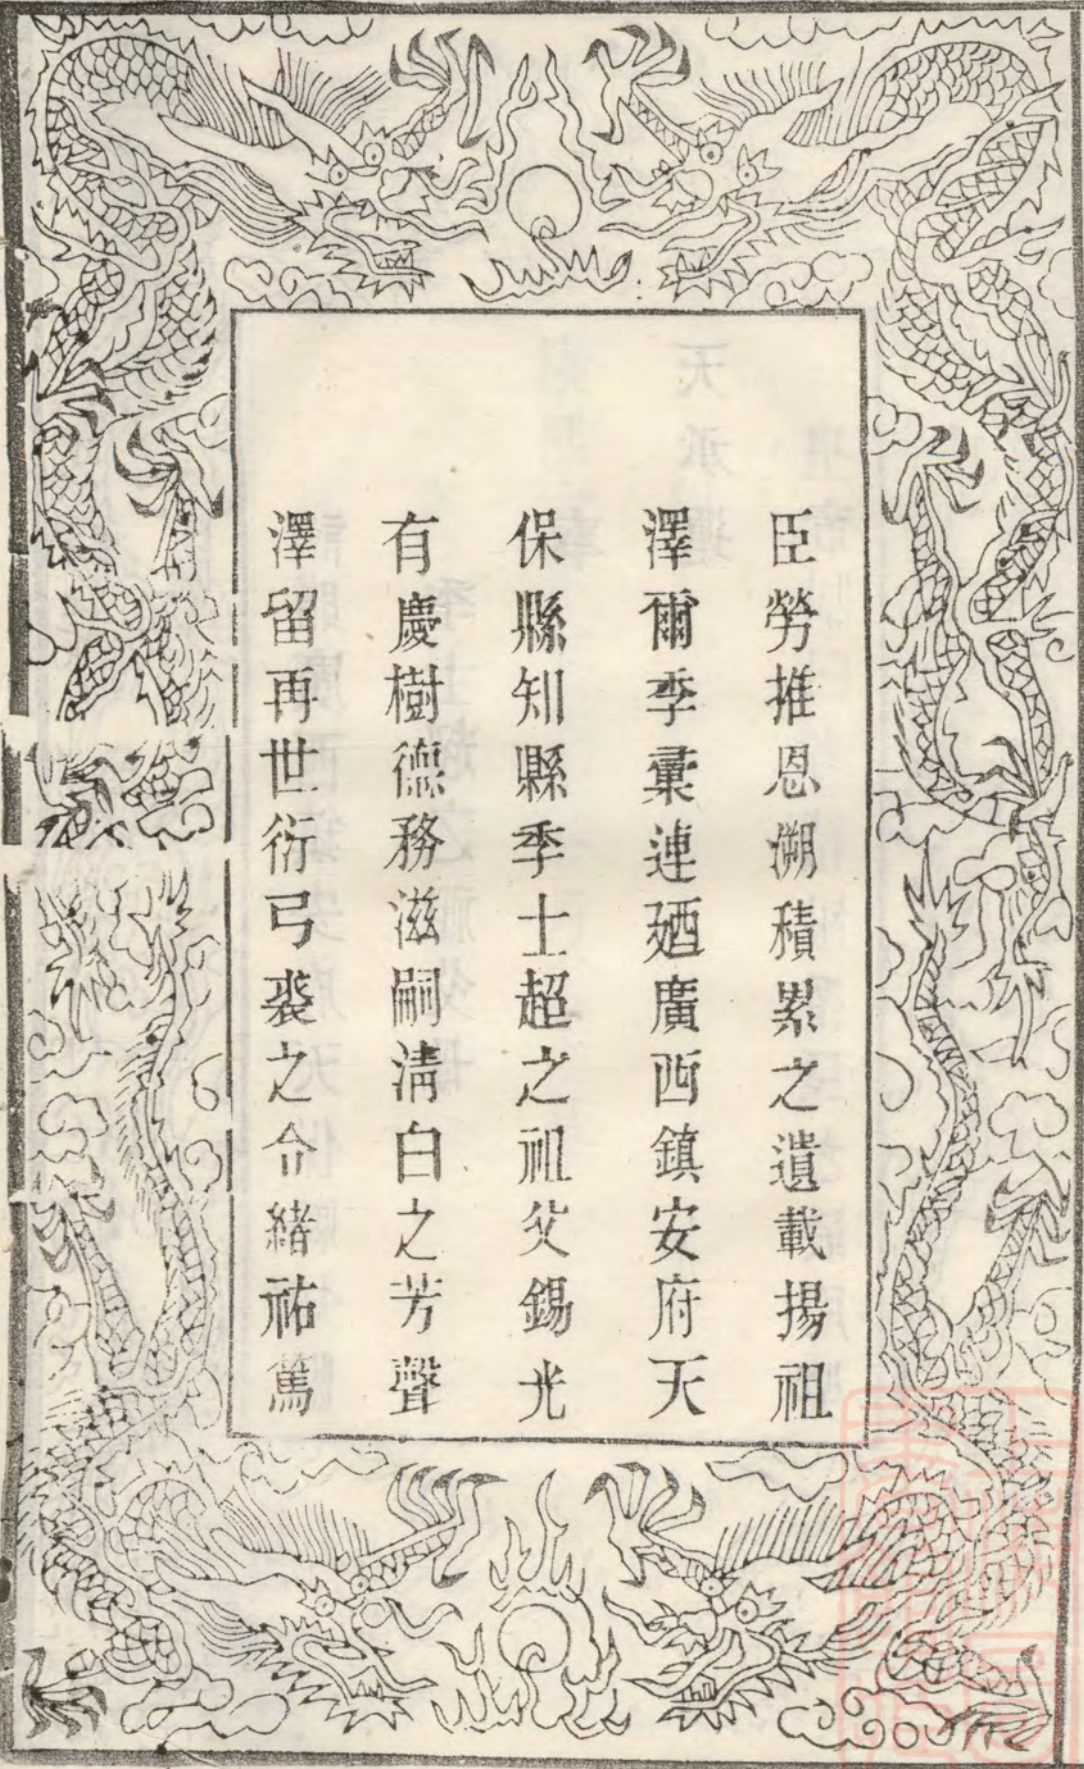 臣勞推恩溯積累之遺載揚祖
澤爾李彙連廼廣西鎮安府天
保縣知縣季士超之祖父錫光
有慶樹德務滋嗣淸白之芳聲
澤留再世衍弓裘之令緒祐篤